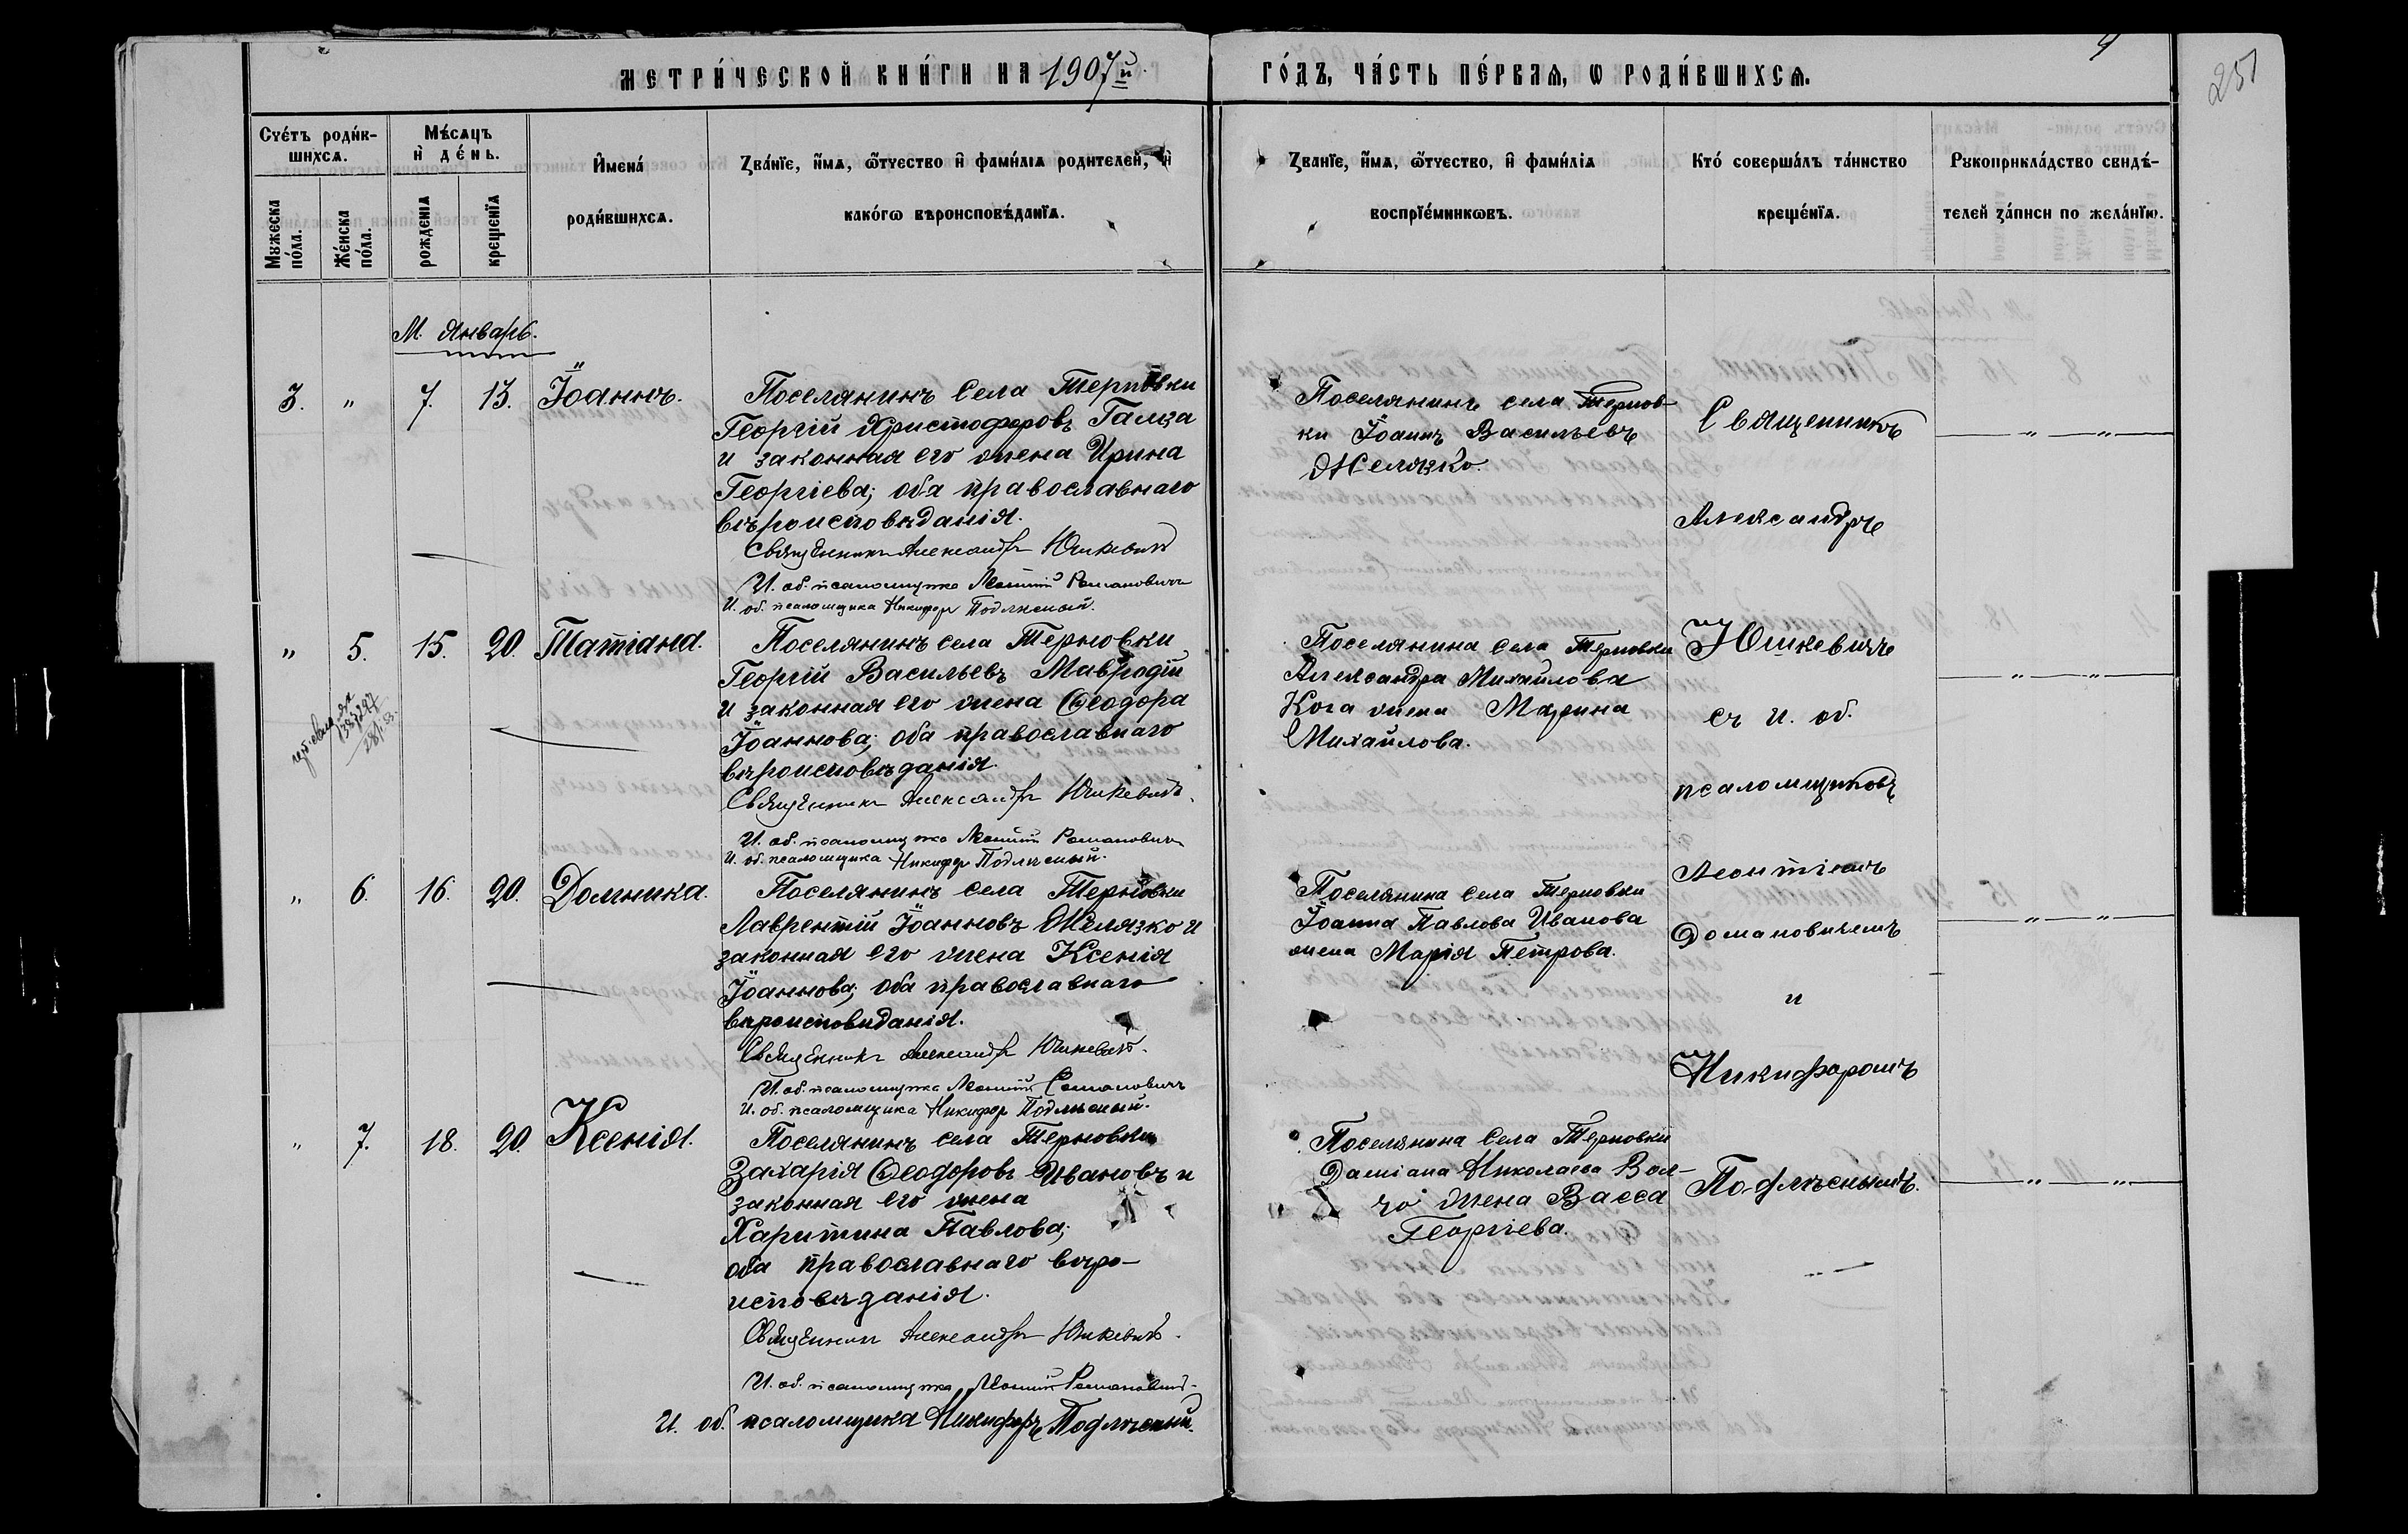 МЕТРИ́ЧЕСКОЙ КНИ́ГИ НА 1907й
ГО́ДЪ, ЧА́СТЬ ПЕ́РВАЯ, Ѡ РОДИ́ВШИХСЯ.
4
251
Сче́тъ роди́в-
шихсѧ.
Мѣ́сѧцъ
и҆ де́нь.
И҆мена́
роди́вшихсѧ.
Зва́нїе, и҆́мѧ, ѻ҆́тчество и҆ фами́лїѧ родителей, и҆
како́гѡ вѣроисповѣ́данїѧ.
Зва́нїе, и҆́мѧ, ѻ҆́тчество, и҆ фами́лїѧ
воспрїе́мникѡвъ.
Кто́ соверша́лъ та́инство
креще́нїѧ.
Рꙋкоприкла́дство свидѣ́-
телей за́писи по жела́нїю.
Мꙋжеска
по́ла.
Же́нска
по́ла.
рожденїѧ
крещенїѧ
М. Январь.
3. " 7. 13. Іоаннъ.
Поселянинъ села Терновки
Георгій Христофоровъ Гамза
и законная его жена Ирина
Георгіева; оба православнаго
вѣроисповѣданія.
Священникъ Александръ Юшкевичъ
И. об. псаломщика Леонтій Домановичъ
И. об. псаломщика Никифоръ Подлѣсный.
Поселянинъ села Тернов-
ки Іоаннъ Васильевъ
Желязко.
Священникъ
Александръ
" "
" 5. 15. 20. Татіана.
Поселянинъ села Терновки
Георгій Васильевъ Мавродій
и законная его жена Ѳеодора
Іоаннова; оба православнаго
вѣроисповѣданія.
Священникъ Александръ Юшкевичъ.
И. об. псаломщика Леонтій Домановичъ
И. об. псаломщика Никифоръ Подлѣсный.
Поселянина села Терновки
Александра Михайлова
Кога жена Марина
Михайлова.
Юшкевичъ
съ и. об.
псаломщиковъ
" "
" 6. 16. 20. Домника.
Поселянинъ села Терновки
Лаврентій Іоанновъ Желязко и
законная его жена Ксенія
Іоаннова; оба православнаго
вѣроисповѣданія.
Священникъ Александръ Юшкевичъ.
И. об. псаломщика Леонтій Домановичъ
И. об. псаломщика Никифоръ Подлѣсный.
Поселянина села Терновки
Іоанна Павлова Иванова
жена Марія Петрова.
Леонтіемъ
Домановичемъ
и
Никифоромъ
" "
" 7. 18. 20. Ксенія.
Поселянинъ села Терновки
Захарія Ѳеодоровъ Ивановъ и
законная его жена
Харитина Павлова;
оба православнаго вѣро-
исповѣданія.
Священникъ Александръ Юшкевичъ.
И. об. псаломщика Леонтій Домановичъ
И. об. псаломщика Никифоръ Подлѣсный.
Поселянина села Терновки
Даміана Николаева Вол-
чо жена Васса
Георгіева.
Подлѣснымъ.
" "